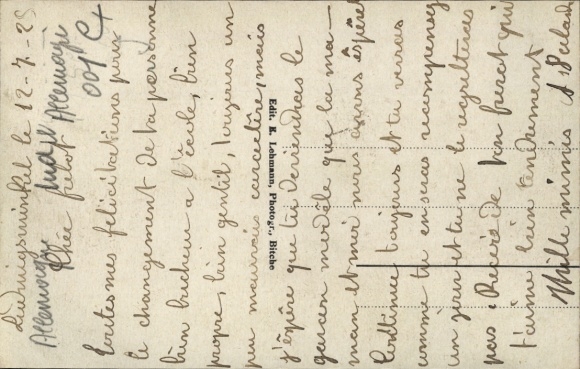 Ludwigswinkel le 12-7-25
Allemagne
Allemagne
Toutes mes félicitations pour
le changement de ta personne
bien bucheur a l'école, bien
propre, bien gentil, toujours un
peu mauvais caractère, mais
j'éspère que tu deviendras le
garcon modèle que ta ma-
man et moi avons éspéré
Continue toujours et tu verras
comme tu en seras recompensé
un jour et tu ne le regretteras
pas. Recois de ton qui
t'aime bien tendrement
Mille mimis
Edit. K. Lehmann, Photogr., Bitche